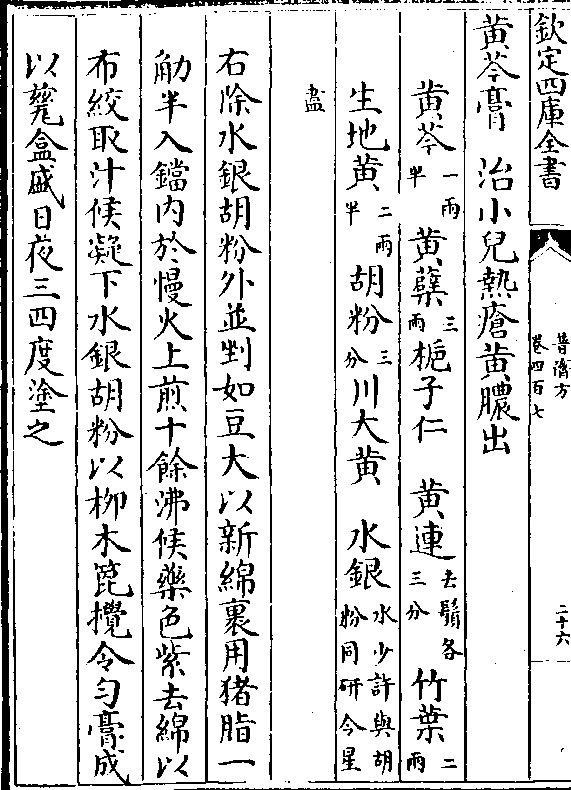 欽定四庫全書
普濟方
卷四百七
二十六
黄芩膏　治小兒熱瘡黄膿出
黄芩一兩半　黄蘗三兩　梔子仁　黄連去鬚各三分　竹葉二兩
生地黄二兩半　胡粉三分　川大黄　水銀水少許與胡粉同研令星
盡
右除水銀胡粉外並剉如豆大以新綿裹用猪脂一
觔半入鐺内於慢火上煎十餘沸候藥色紫去綿以
布絞取汁候凝下水銀胡粉以栁木箆攪令匀膏成
以甆盒盛日夜三四度塗之